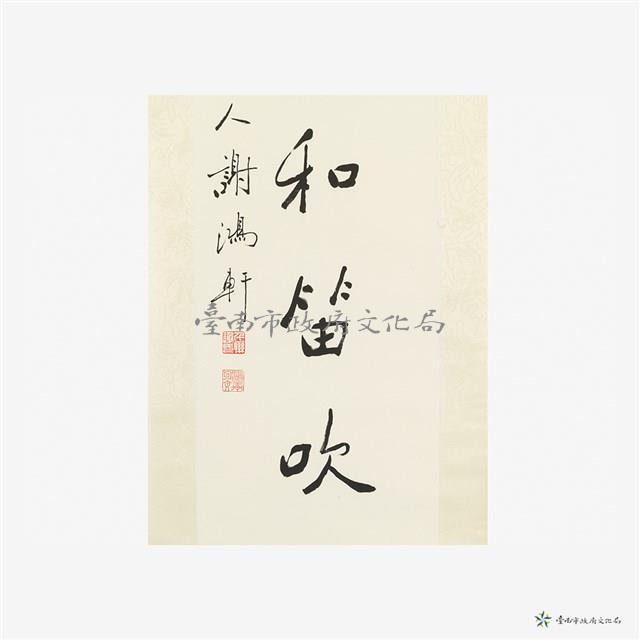 和笛吹
人謝鴻軒
臺南市政府文化局
臺南市政府文化局